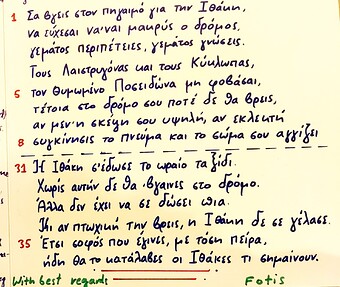 1 Σα βγεις στον πηγαιμό για την Ιθάκη,
να εύχεσαι να'ναι μακρύς ο δρόμος,
γεμάτος περιπέτειες, γεμάτος γνώσεις.
Τους Λαιστρυγόνας και τους Κύκλωπας,
5 τον θυμωμένο Ποσειδώνα μη φοβάσαι,
τέτοια στο δρόμο σου ποτέ δε θα βρεις,
αν μεν'η σκέψη σου υψηλή, αν εκλεκτή
8 συγκίνησις το πνεύμα και το σώμα σου αγγίζει
31 Η Ιθάκη σ'έδωσε το ωραίο ταξίδι.
Χωρίς αυτήν δε θα 'βγαινες στο δρόμο.
Άλλα δεν έχει να σε δώσει πια.
Κι αν πτωχική την βρεις, η Ιθάκη δε σε γέλασε.
35 Έτσι σοφός που έγινες, με τόση πείρα,
ήδη θα το κατάλαβες οι Ιθάκες τι σημαίνουν.
With best regards Fotis